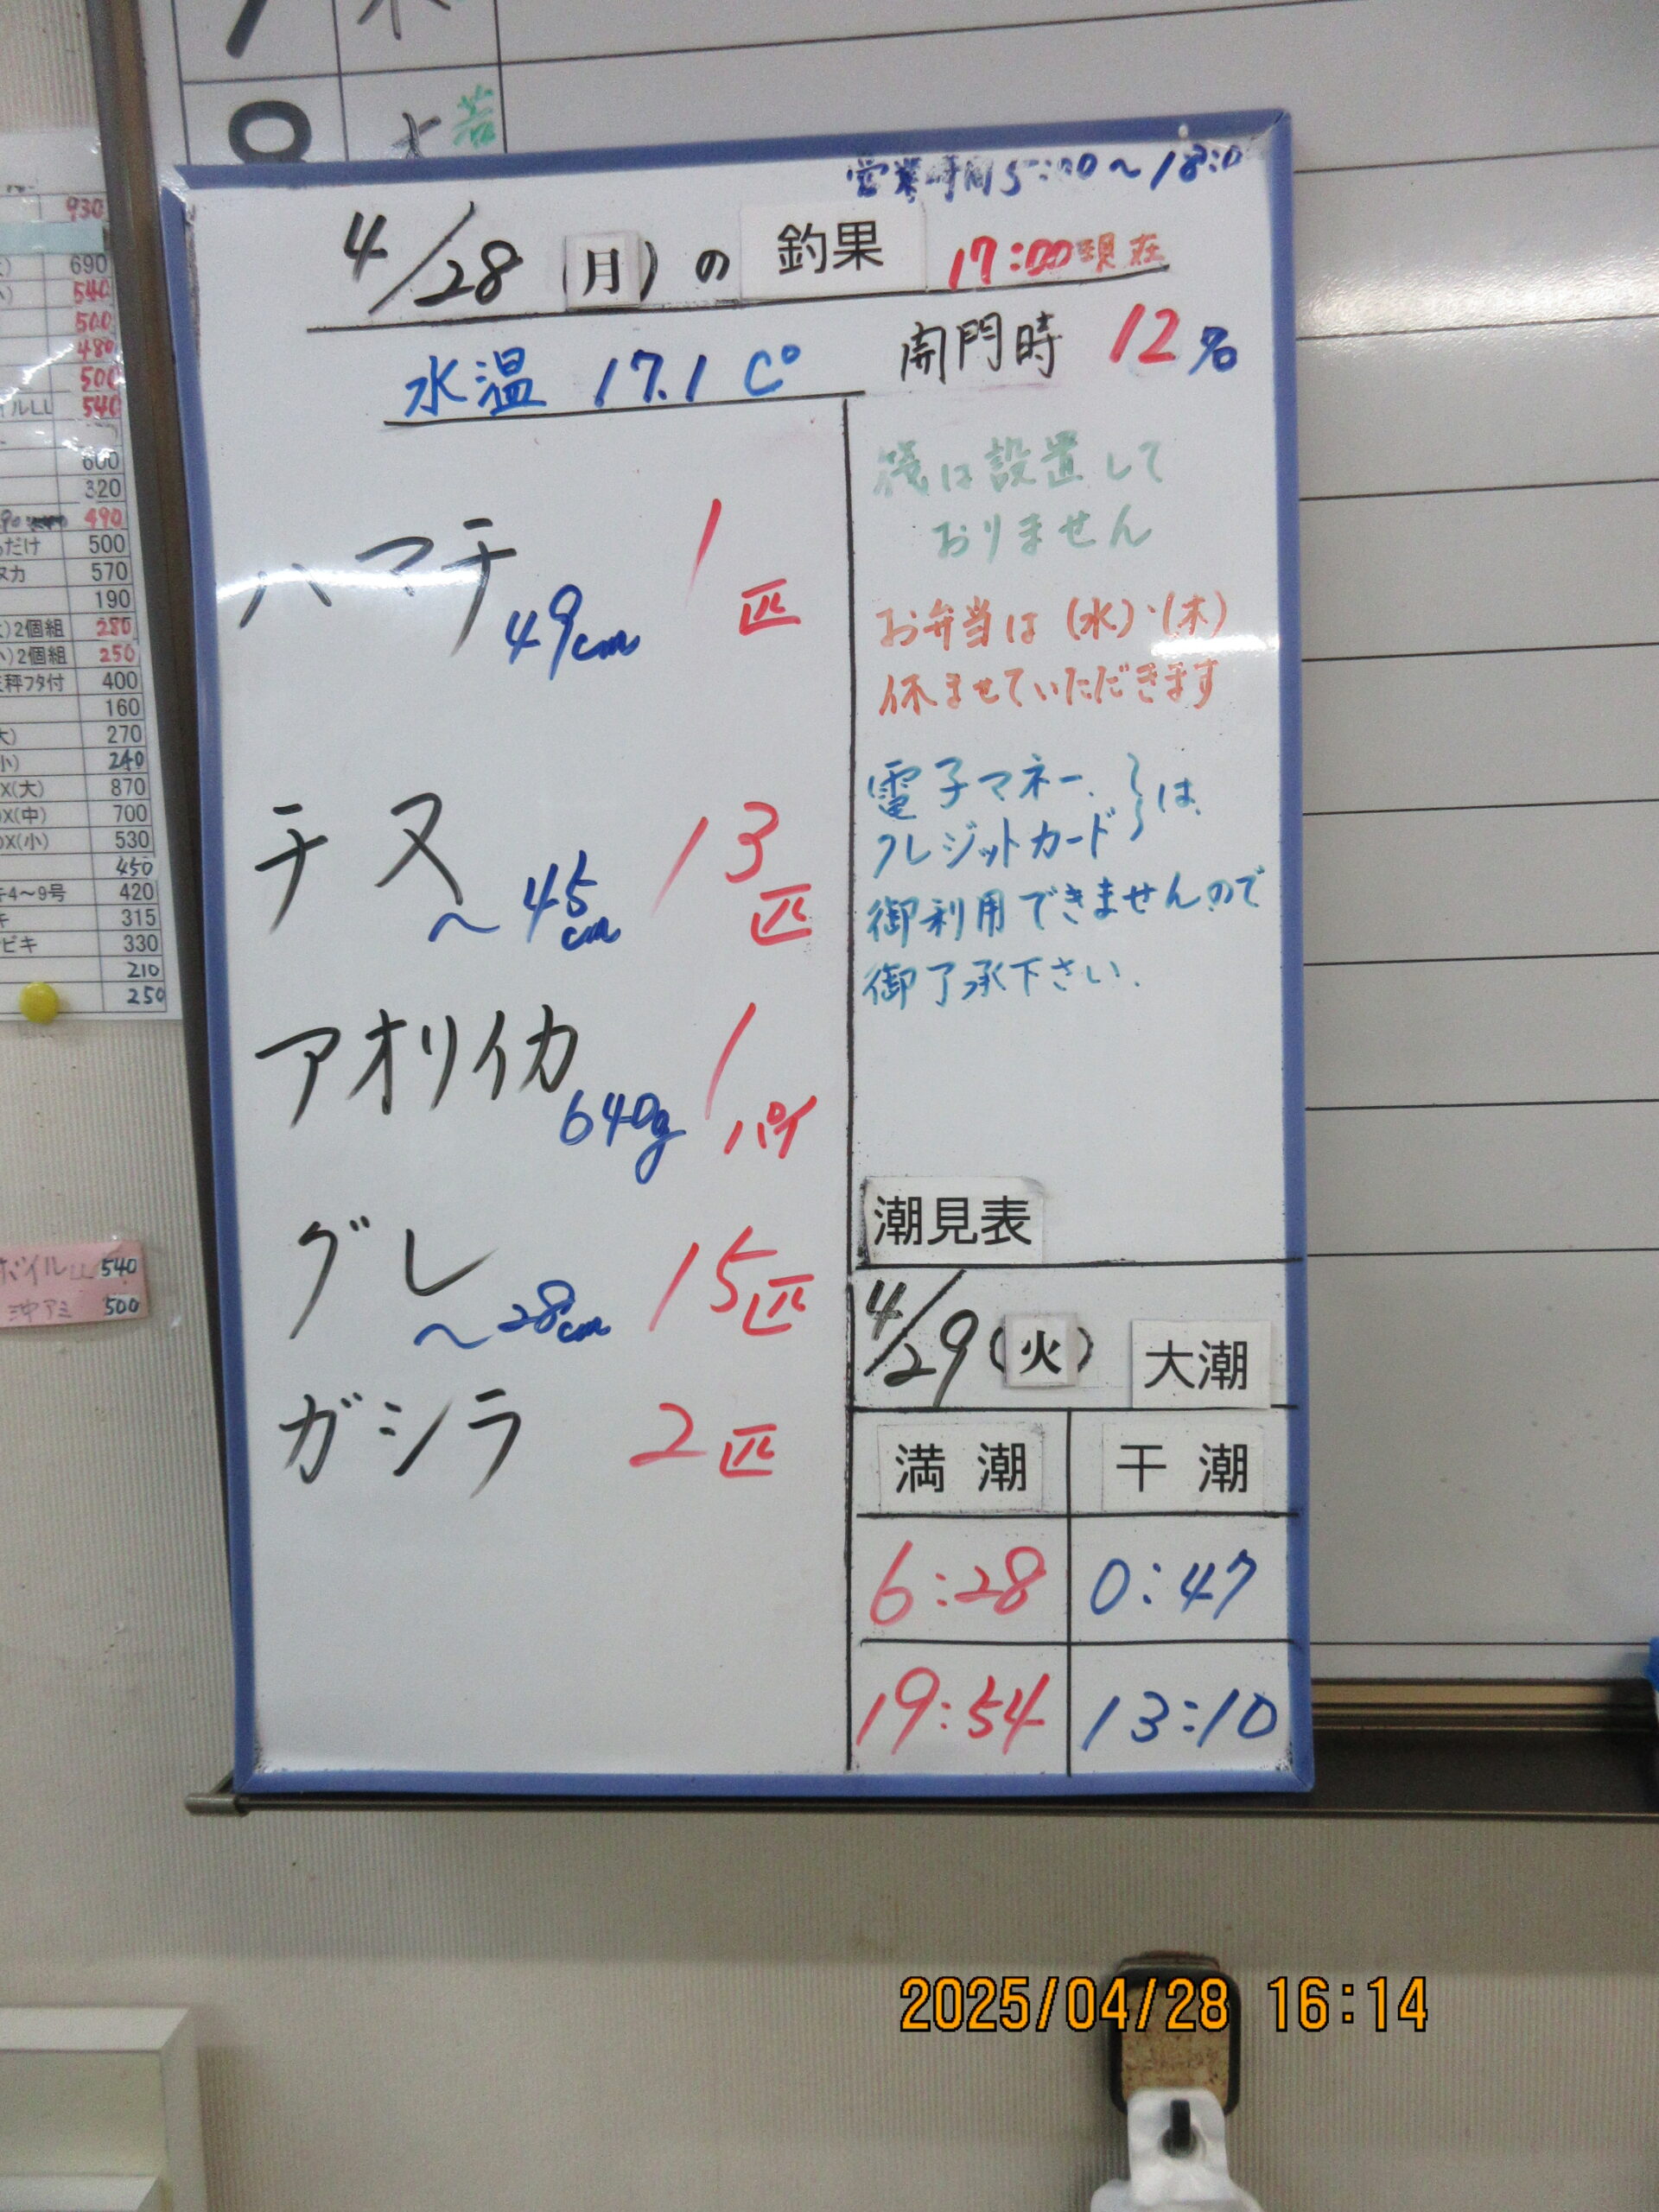 営業時間 5:00～18:0
4/28(月)の 釣果 17:00現在
水温 17.1 C°
開門時 12名
ハマチ 49cm 1匹
チヌ ～45cm 13匹
アオリイカ 640g 1パイ
グレ ～28cm 15匹
ガシラ 2匹
筏は設置して
おりません
お弁当は(水)・(木)
休ませていただきます
電子マネー、
クレジットカード}は、
御利用できませんので
御了承下さい.
潮見表
4/29(火) 大潮
満潮 干潮
6:28 0:47
19:54 13:10
930
690
540
500
480
500
イルLL 540
600
320
490
だけ 500
ヌカ 570
190
)2個組 280
)2個組 250
秤フタ付 400
160
大) 270
小) 240
X(大) 870
OX(中) 700
OX(小) 530
450
キ4～9号 420
キ 315
ビキ 330
210
250
ボイルLL 540
沖アミ 500
若
2025/04/28 16:14